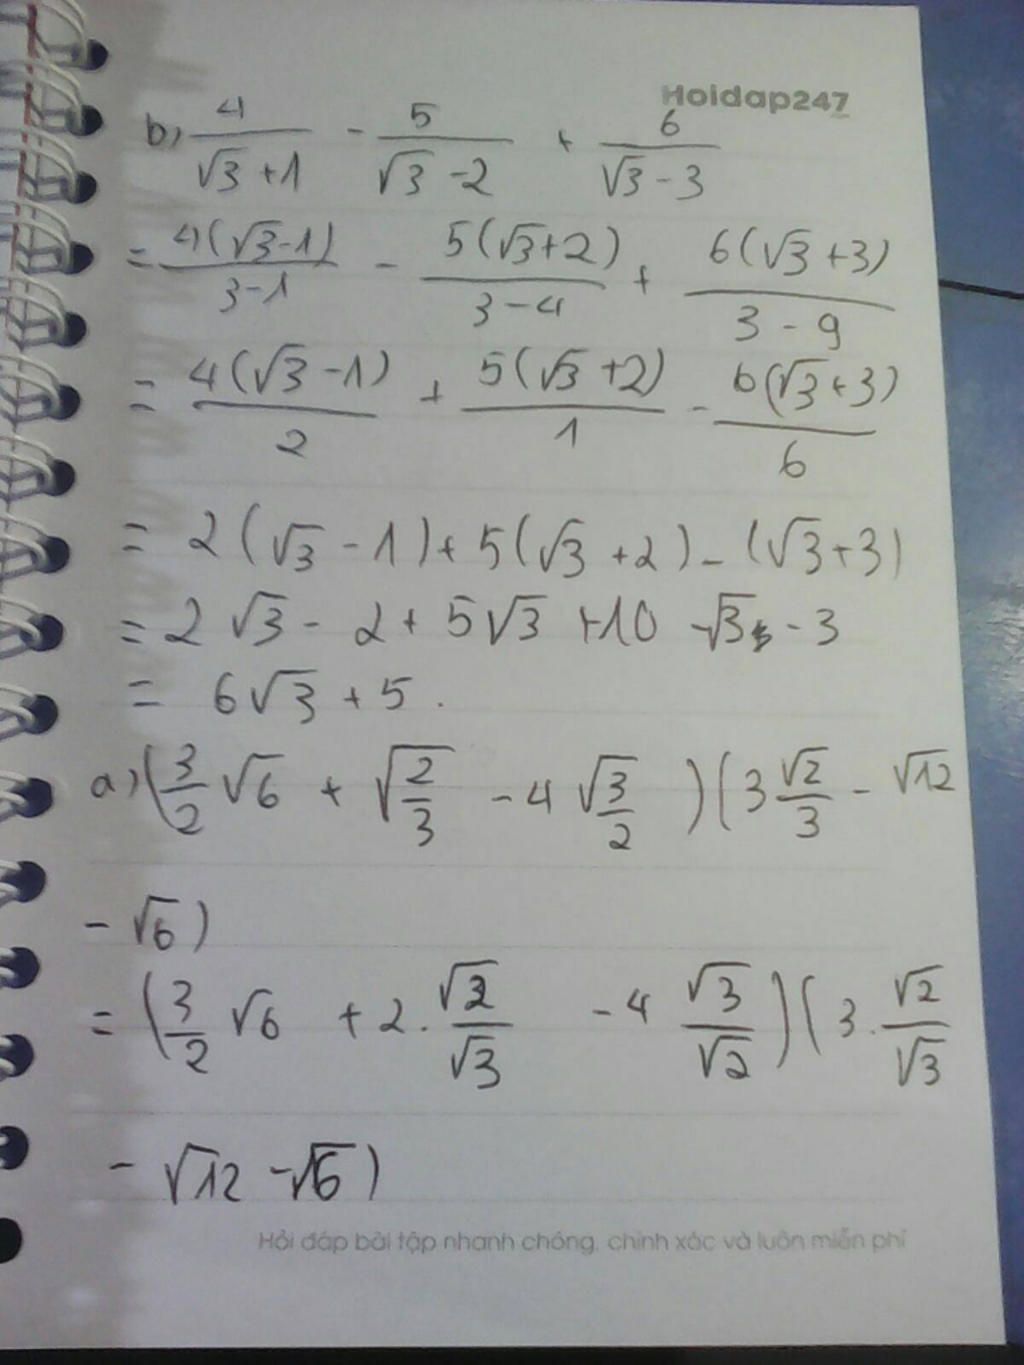 Hoidap247
b) 4/(√3 + 1) - 5/(√3 - 2) + 6/(√3 - 3)
= 4(√3-1)/(3-1) - 5(√3+2)/(3-4) + 6(√3+3)/(3-9)
= 4(√3-1)/2 + 5(√3+2)/1 - 6(√3+3)/6
= 2(√3 - 1) + 5(√3 + 2) - (√3+3)
= 2√3 - 2 + 5√3 + 10 - √3 - 3
= 6√3 + 5.
a) (3/2 √6 + √(2/3) - 4 √(3/2)) (3 √2/3 - √12
- √6)
= (3/2 √6 + 2. √2/√3 - 4 √3/√2) (3. √2/√3
- √12 - √6)
Hỏi đáp bài tập nhanh chóng, chính xác và luôn miễn phí